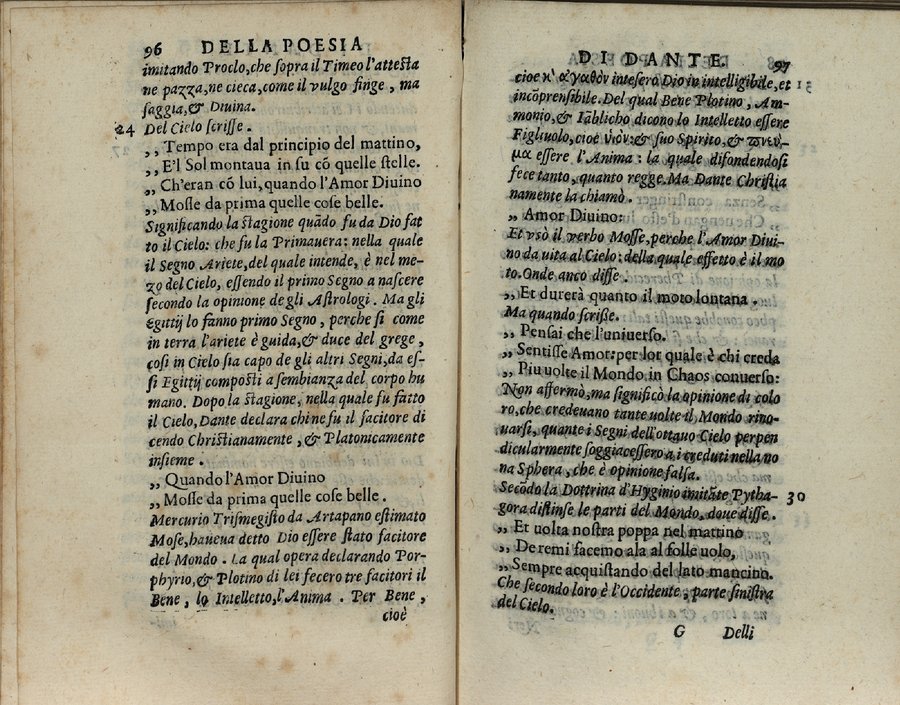 96 DELLA POESIA
imitando Proclo, che sopra il Timeo l'attesta
ne pazza, ne cieca, come il vulgo finge, ma
saggia, & Diuina.
24 Del Cielo scrisse.
,, Tempo era dal principio del mattino,
,, E'l Sol montaua in su cō quelle stelle.
,, Ch'eran cō lui, quando l'Amor Diuino
,, Mosse da prima quelle cose belle.
Significando la stagione quādo fu da Dio fat
to il Cielo: che fu la Primauera: nella quale
il Segno Ariete, del quale intende, è nel me-
zo del Cielo, essendo il primo Segno a nascere
secondo la opinione de gli Astrologi. Ma gli
Egittij lo fanno primo Segno, perche si come
in terra l'ariete è guida, & duce del grege,
cosi in Cielo sia capo de gli altri Segni, da es-
si Egittij composti a sembianza del corpo hu
mano. Dopo la stagione, nella quale fu fatto
il Cielo, Dante declara chi ne fu il facitore di
cendo Christianamente, & Platonicamente
insieme.
,, Quando l'Amor Diuino
,, Mosse da prima quelle cose belle.
Mercurio Trismegisto da Artapano estimato
Mose, haueua detto Dio essere stato facitore
del Mondo. La qual opera declarando Por-
phyrio, & Plotino di lei fecero tre facitori il
Bene, lo Intelletto, l'Anima. Per Bene,
cioè
DI DANTE. 97
cioe κ' αγαθὸν intesero Dio in intelligibile, et
incōprensibile. Del qual Bene Plotino, Am-
monio, & Iablicho dicono lo Intelletto essere
Figliuolo, cioè ὑιόν: & suo Spirito, & πνεῦ-
μα essere l'Anima: la quale difondendosi
fece tanto, quanto regge. Ma Dante Christia
namente la chiamò.
,, Amor Diuino:
Et vsò il verbo Mosse, perche l'Amor Diui-
no da uita al Cielo: della quale effetto è il mo
to. Onde anco disse.
,, Et durerà quanto il moto lontana.
Ma quando scriße.
,, Pensai che l'vniuerso.
,, Sentisse Amor: per lor quale è chi creda
,, Piu uolte il Mondo in Chaos conuerso:
Non affermò, ma significò la opinione di colo
ro, che credeuano tante uolte il Mondo rino-
uarsi, quante i Segni dell'ottauo Cielo perpen
dicularmente soggiacessero a i creduti nella no
na Sphera, che è opinione falsa.
Secōdo la Dottrina d'Hyginio imitāte Pytha- 30
gora distinse le parti del Mondo, doue disse.
,, Et uolta nostra poppa nel mattino
,, De remi facemo ala al folle uolo,
,, Sempre acquistando del lato mancino.
Che secondo loro è l'Occidente, parte sinistra
del Cielo.
G Delli